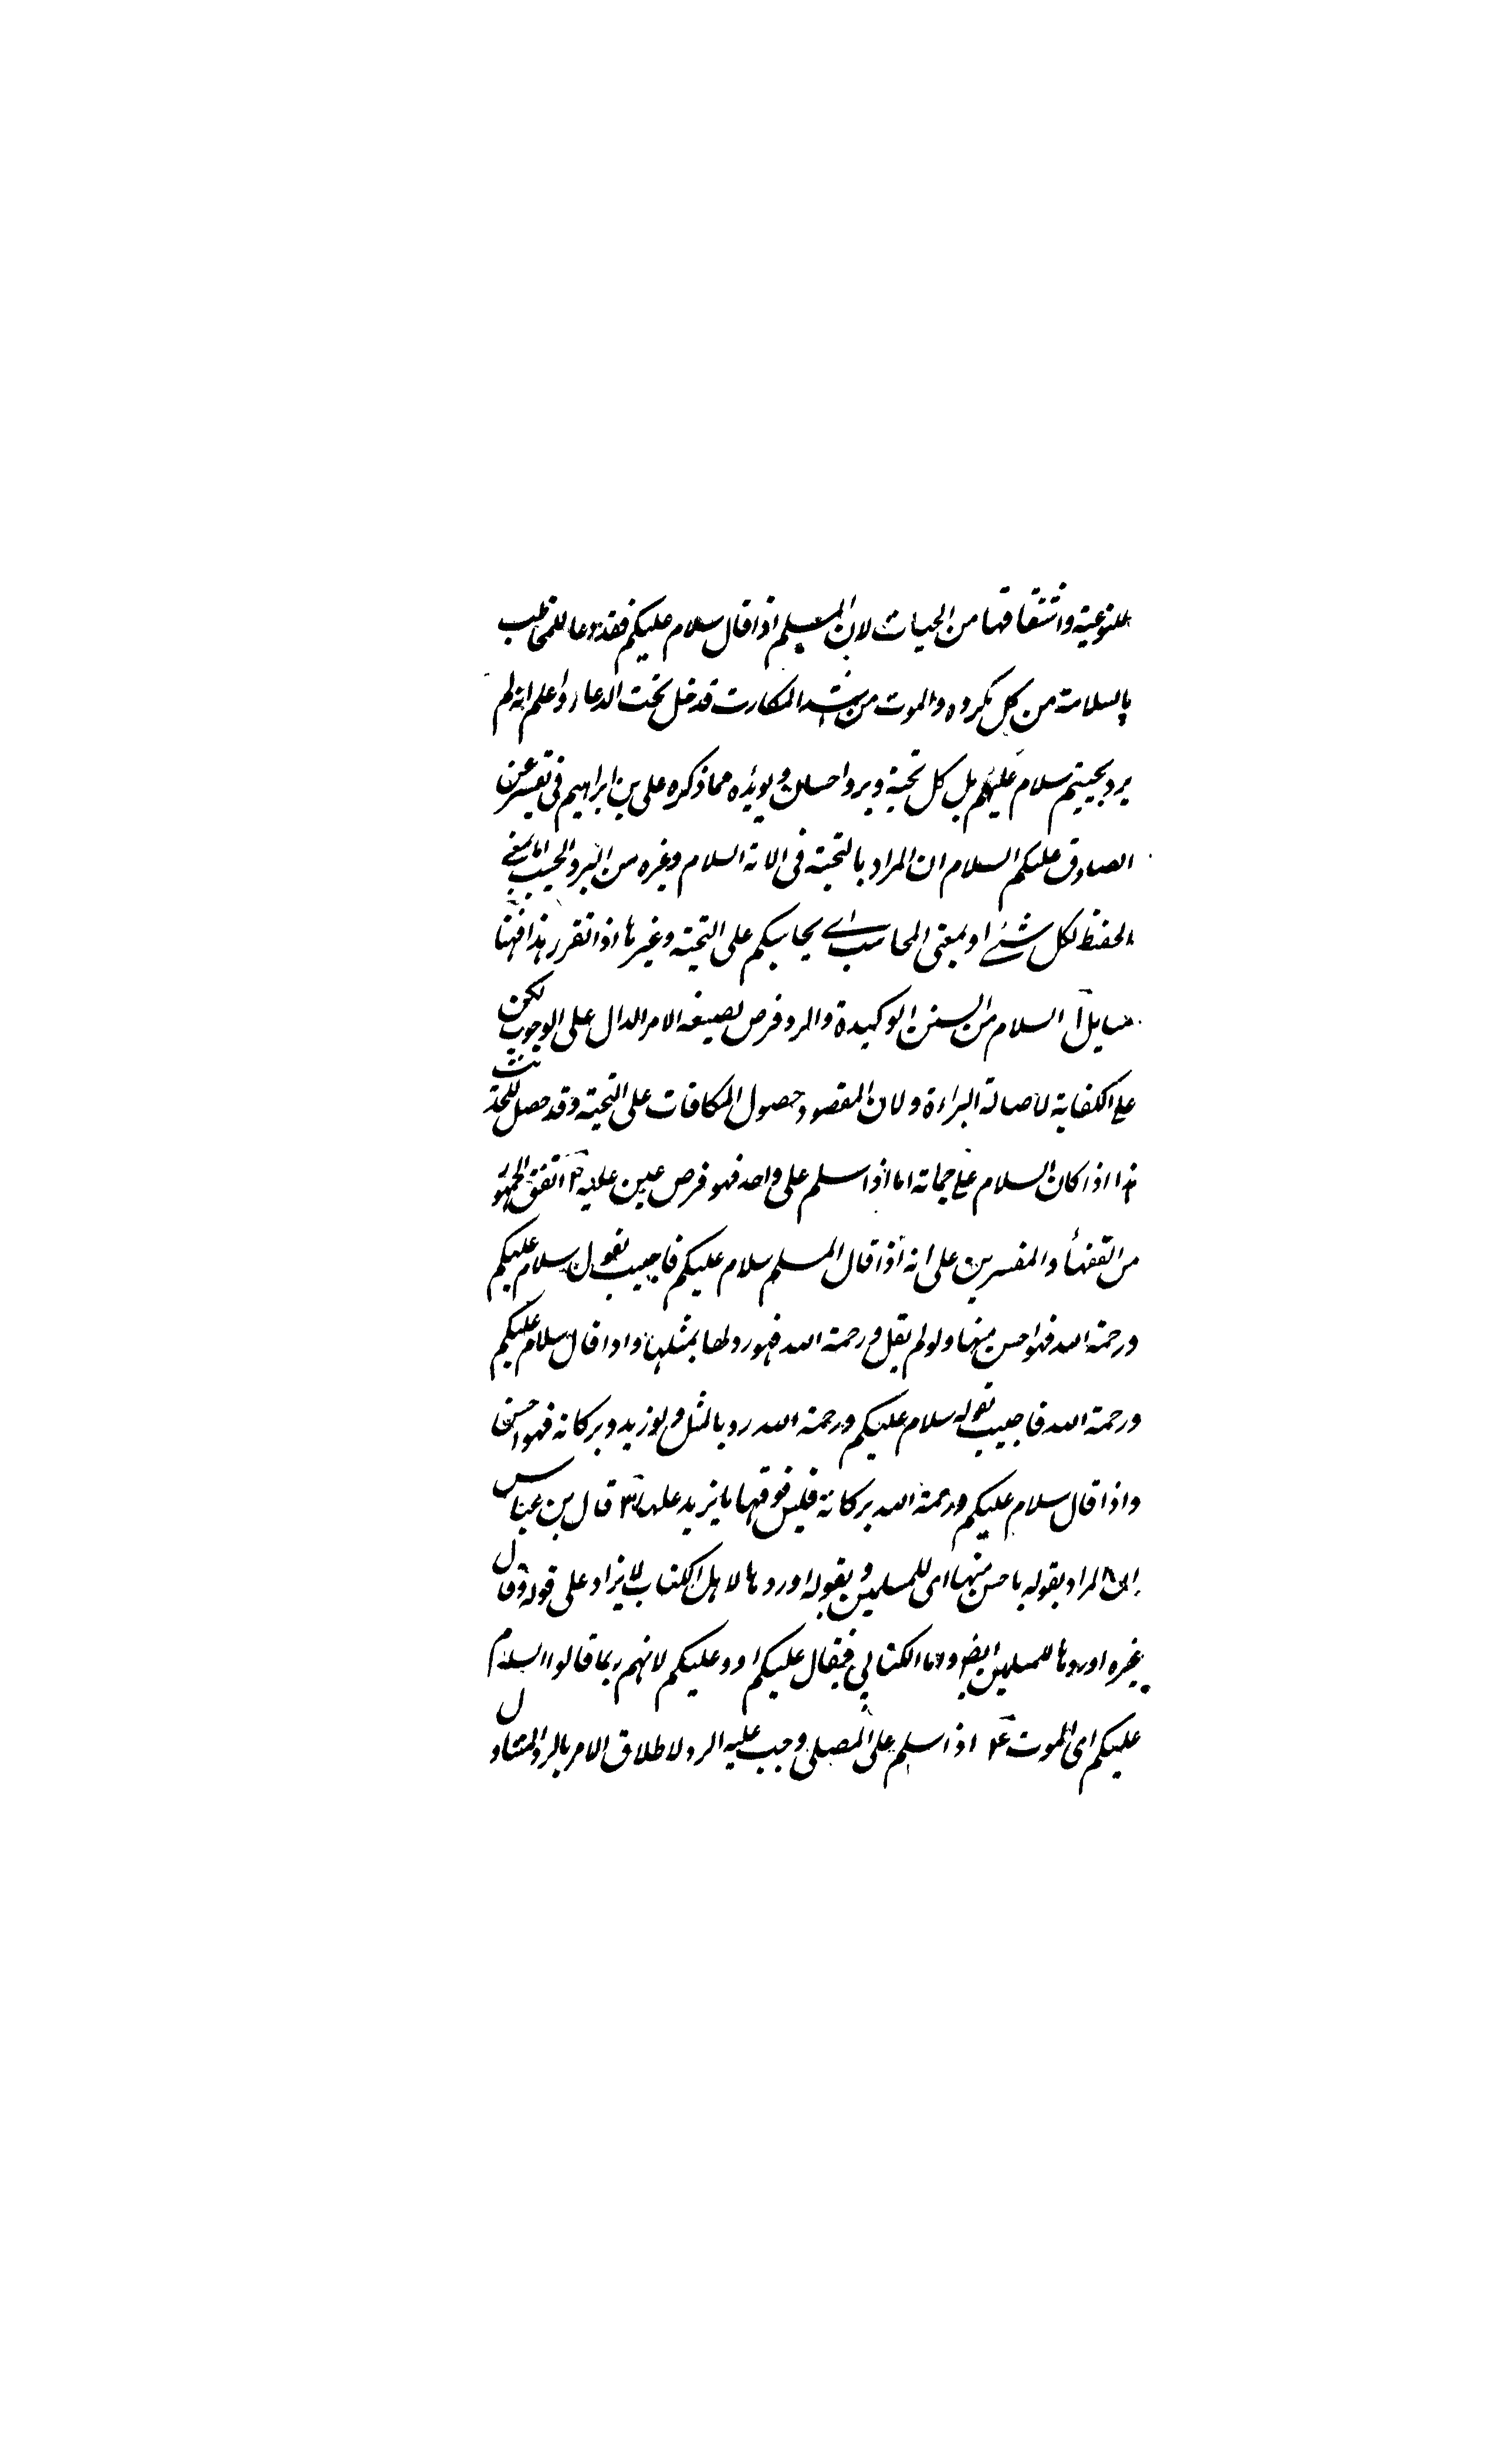 للنوعية واشتقاقها من الحيات لان المسلم اذا قال سلام عليكم فقد دعا للمخاطب
بالسلامة من كل مكروه والموت من اشد المكاره فدخل تحت الدعاء واعلم انه لم
يرد بحييتم سلام عليكم بل كل تحية وبر واحسان ويؤيده مما ذكره علي بن ابراهيم في تفسيره عن
الصادق عليكم السلام ان المراد بالتحية في الاية السلام وغيره من البر والحسيب اما بمعنى
الحفيظ لكل شئ او بمعنى المحاسب اي يحاسبكم على التحية وغيرها اذا تقرر هذا فهنا
مسايل آ السلام من السنن الوكيدة والرد فرض لصيغة الامر الدال على الوجوب لكن
على الكفاية لاصالة البراءة ولان المقصود حصول المكافات على التحية وقد حصل
هذا اذا كان السلام على جماعة اما اذا سلم على واحد فهو فرض عين عليه ٢ اتفق الجمهور
من الفقهاء والمفسرين على انه اذا قال المسلم سلام عليكم فاجيب بقول سلام عليكم
ورحمة الله فهو احسن منها ولو لم يقل ورحمة الله فهو رد لها بمثلها واذا قال سلام عليكم
ورحمة الله فاجيب بقوله سلام عليكم ورحمة الله رد بالمثل ولو زيد وبركاته فهو احسن
واذا قال سلام عليكم ورحمة الله بركاته فليس فوقها ما يزيد عليها ٣ قال بن عباس
ان المراد بقوله باحسن منها اي للمسلمين وبقوله او ردوها لاهل الكتاب لا يزاد على قوله وقال
غيره او ردوها للمسلمين ايضا واما الكتابي فيقال عليكم او وعليكم لانهم ربما قالوا السام
عليكم اي الموت ٤ اذا سلم على المصلي وجب عليه الرد لاطلاق الامر بالرد المتناول